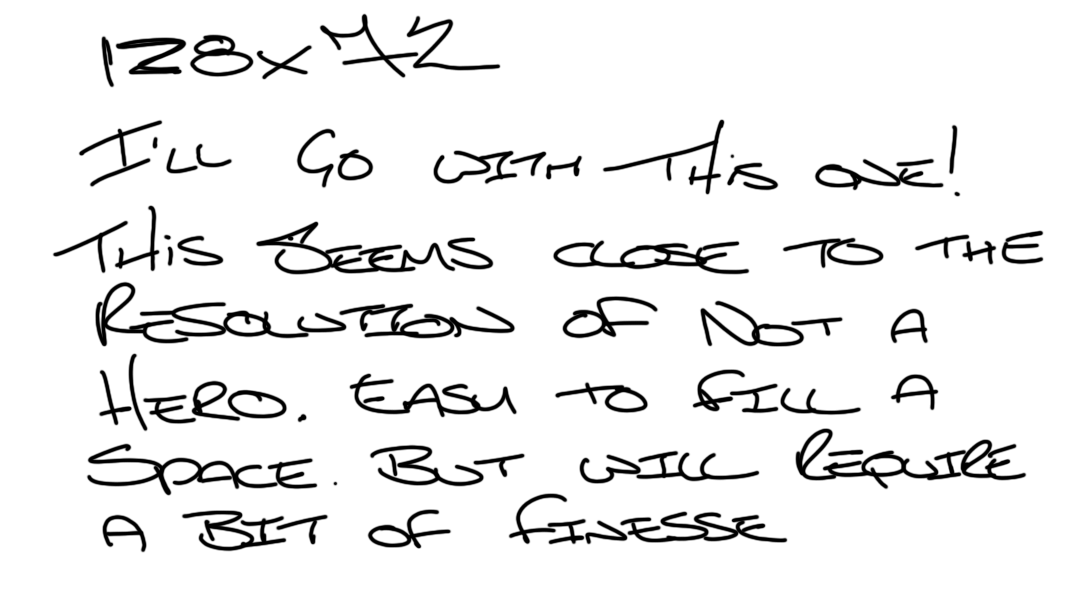 128x72
I'LL GO WITH THIS ONE!
THIS SEEMS CLOSE TO THE
RESOLUTION OF NOT A
HERO. EASY TO FILL A
SPACE. BUT WILL REQUIRE
A BIT OF FINESSE